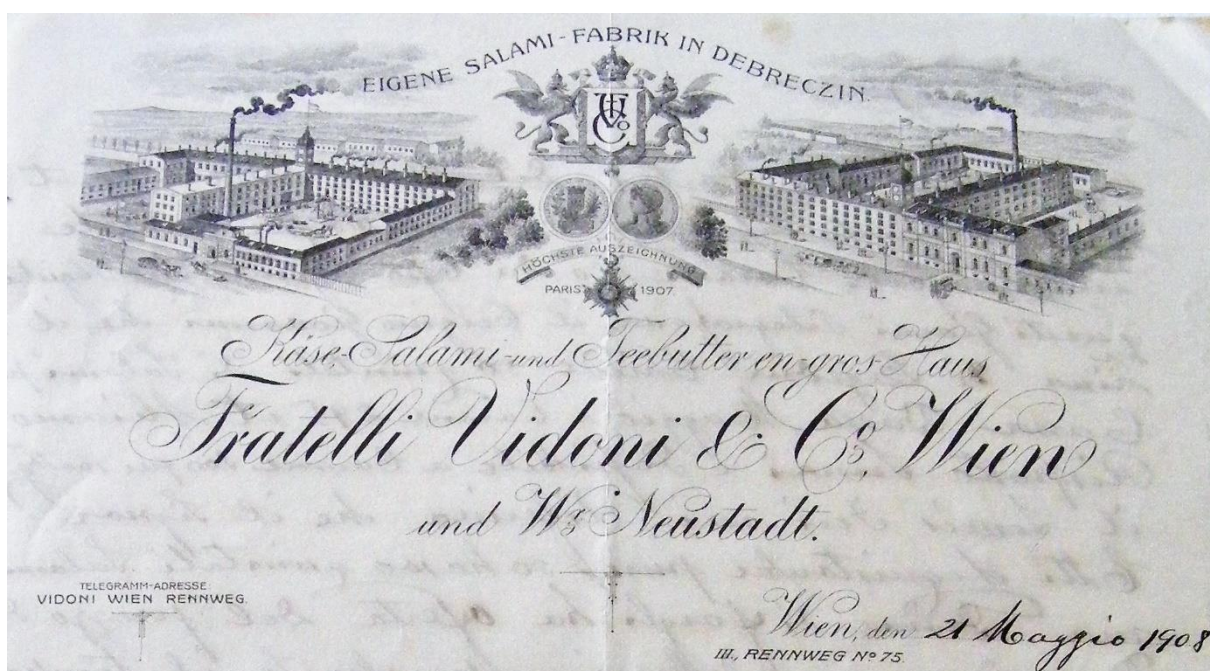 EIGENE SALAMI-FABRIK IN DEBRECZIN.
HÖCHSTE AUSZEICHNUNG
PARIS 1907.
Käse-Salami-und Teebutter en-gros-Haus
Fratelli Vidoni & Co, Wien
und Wr Neustadt.
TELEGRAMM-ADRESSE:
VIDONI WIEN RENNWEG.
Wien, den 21 Maggio 1908
III., RENNWEG No 75.